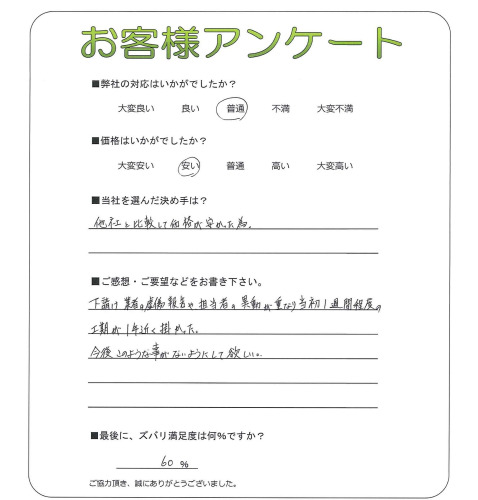 お客様アンケート
■弊社の対応はいかがでしたか？
大変良い 良い 普通 不満 大変不満
■価格はいかがでしたか？
大変安い 安い 普通 高い 大変高い
■当社を選んだ決め手は？
他社と比較して価格が安かった為。
■ご感想・ご要望などをお書き下さい。
下請け業者の虚偽報告や担当者の異動が重なり当初1週間程度の
工期が1年近く掛かった。
今後このような事がないようにして欲しい。
■最後に、ズバリ満足度は何%ですか？
60 %
ご協力頂き、誠にありがとうございました。